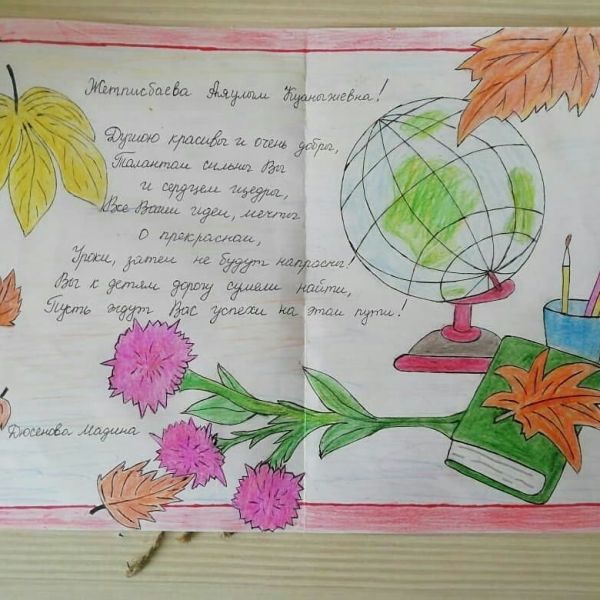 Жетписбаева Аяулым Куанышевна!
Душою красивы и очень добры,
Талантом сильны Вы
и сердцем щедры,
Все Ваши идеи, мечты
о прекрасном,
Уроки, затеи не будут напрасны!
Вы к детям дорогу сумели найти,
Пусть ждут Вас успехи на этом пути!
Дюсенова Мадина